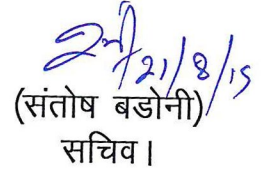 21/8/15
(संतोष बडोनी)
सचिव।